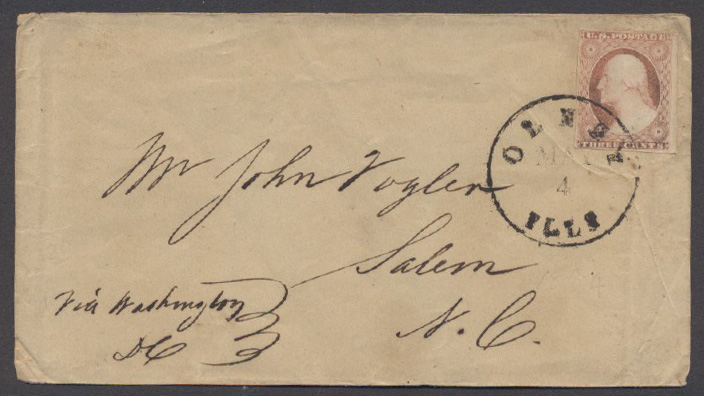 U.S. POSTAGE
THREE CENTS
OLNEY
4
ILLS
Mr John Vogler
Salem
N.C.
Via Washington
DC